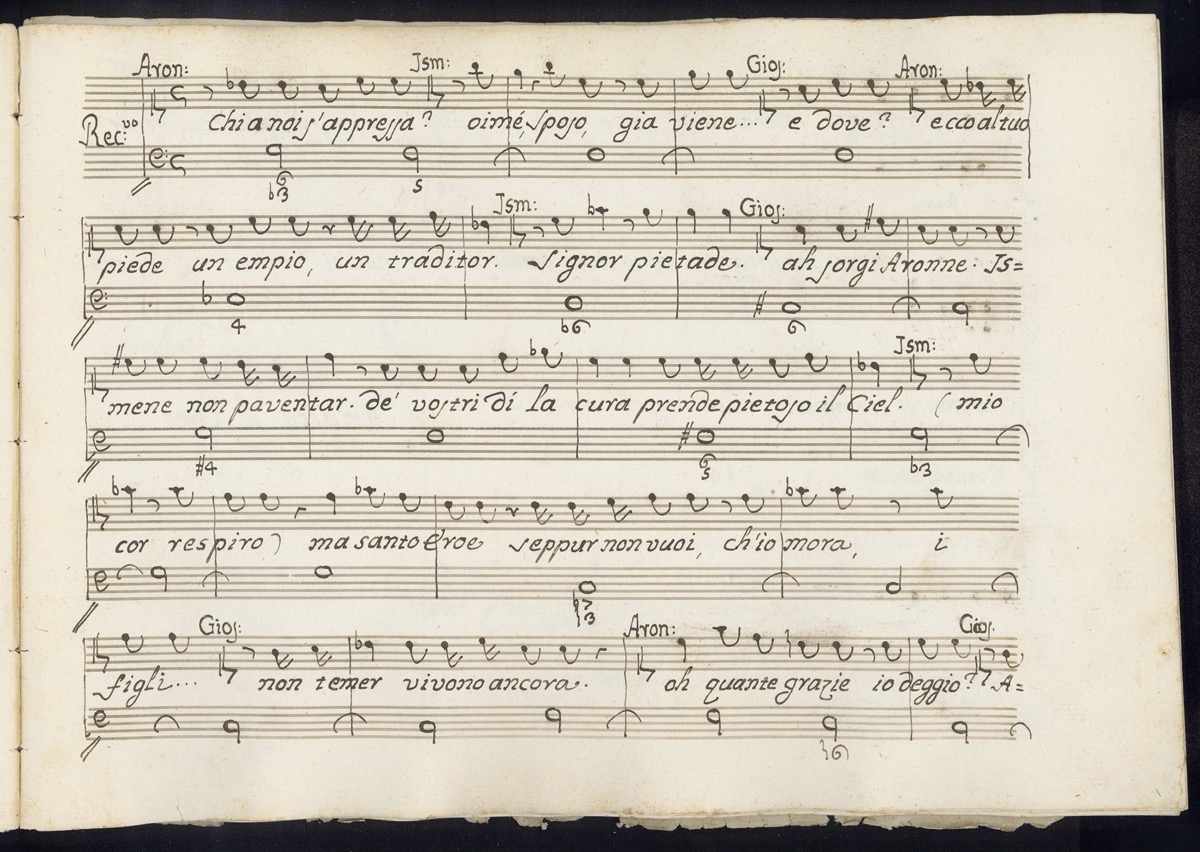 Aron: Jsm: Gioſ: Aron:
Rec:vo Chi a noi ſ'appreſſa? oimé, ſpoſo, gia viene... e dove? ecco al tuo
6 ♭3 5
Jsm: Gioſ:
piede un empio, un traditor. Signor pietade. ah ſorgi Aronne. Js=
4 ♭6 6
Jsm:
mene non paventar. de' voſtri dí la cura prende pietoſo il Ciel. (mio
#4 6 5 ♭3
cor respiro) ma santo Eroe seppur non vuoi, ch'io mora, i
♭7 ♮3
Gioſ: Aron: Gioſ.
figli... non temer vivono ancora. oh quante grazie io deggio? A=
♮6